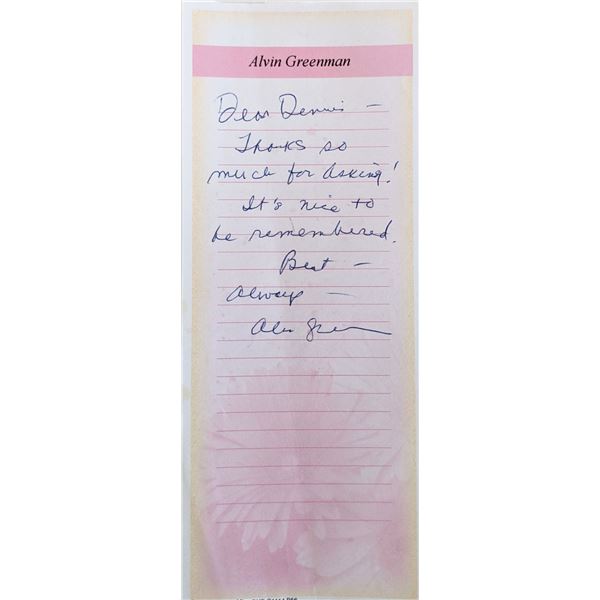 Alvin Greenman
Dear Dennis —
Thanks so
much for asking!
It's nice to
be remembered.
Best —
Always —
Alvin Greenman